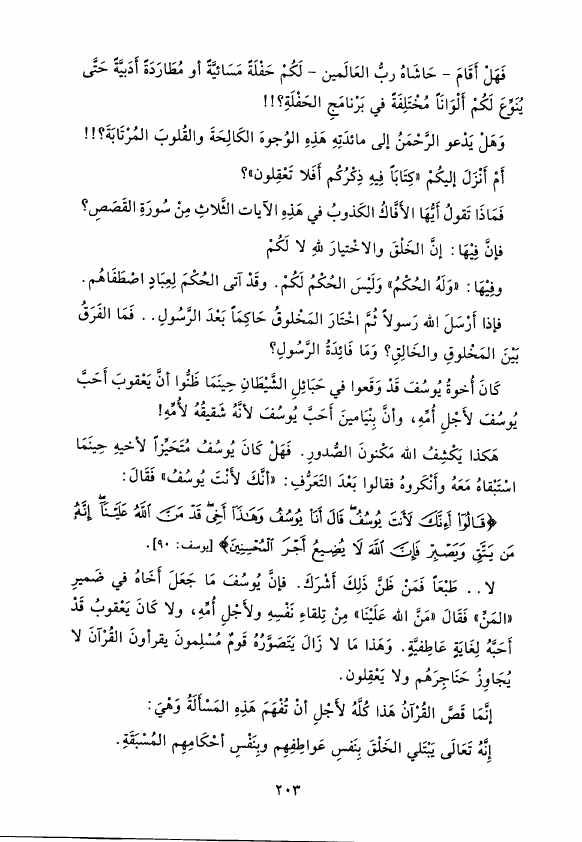 فَهَلْ أَقَامَ - حَاشَاهُ ربُّ العَالَمين - لَكُمْ حَفْلَةً مَسَائيَّةً أو مُطَارَدَةً أدَبيَّةً حَتَّى
يُنَوِّعَ لَكُمْ أَلْوَانَاً مُخْتَلِفَةً في بَرْنامَجِ الحَفْلَةِ؟!!
وَهَلْ يَدْعو الرَّحْمَنُ إلى مائدَتِهِ هَذِهِ الوُجوهَ الكَالِحَةَ والقُلوبَ المُرْتَابَةَ؟!!
أَمْ أَنْزَلَ إليكُمْ «كِتَابَاً فيهِ ذِكْرُكُم أَفَلا تَعْقِلون»؟
فَمَاذَا تَقولُ أَيُّهَا الأَفَّاكُ الكَذوبُ في هَذِهِ الآيات الثَّلاثِ مِنْ سُورَةِ القَصَصِ؟
فإنَّ فِيْهَا: إنَّ الخَلْقَ والاخْتيارَ للهِ لا لَكُمْ
وفِيْهَا: «وَلَهُ الحُكْمُ» وَلَيْسَ الحُكْمُ لَكُمْ. وقَدْ آتى الحُكْمَ لِعِبَادٍ اصْطَفَاهُم.
فإذا أَرْسَلَ الله رَسولاً ثُمَّ اخْتَارَ المَخْلوقُ حَاكِمَاً بَعْدَ الرَّسولِ.. فَمَا الفَرَقُ
بَيْنَ المَخْلوقِ والخَالِقِ؟ وَمَا فَائِدَةُ الرَّسولِ؟
كَانَ أُخوةُ يُوسُفَ قَدْ وَقَعوا في حَبَائِلِ الشَّيْطَانِ حينَمَا ظَنُّوا أنَّ يَعْقوبَ أَحَبَّ
يُوسُفَ لأجْلِ أُمِّهِ، وأنَّ بِنْيَامينَ أحَبَّ يُوسُفَ لأنَّهُ شَقيقُهُ لأُمِّهِ!
هَكذا يَكْشِفُ الله مَكْنونَ الصُّدورِ. فَهَلْ كَانَ يُوسُفُ مُتَحَيِّزاً لأخيهِ حِينَمَا
اسْتَبْقاهُ مَعَهُ وأَنْكَروهُ فقالوا بَعْدَ التَعَرُّفِ: «أَنكَ لأَنْتَ يُوسُفُ» فَقَالَ:
﴿قَالُوٓا۟ أَءِنَّكَ لَأَنتَ يُوسُفُ ۖ قَالَ أَنَا۠ يُوسُفُ وَهَٰذَآ أَخِى ۖ قَدْ مَنَّ ٱللَّهُ عَلَيْنَآ ۖ إِنَّهُۥ
مَن يَتَّقِ وَيَصْبِرْ فَإِنَّ ٱللَّهَ لَا يُضِيعُ أَجْرَ ٱلْمُحْسِنِينَ﴾ [يوسف: ٩٠].
لا.. طَبْعَاً فَمَنْ ظَنَّ ذَلِكَ أَشْرَكَ. فإنَّ يُوسُفَ مَا جَعَلَ أَخَاهُ في ضَميرِ
«المَنِّ» فَقَالَ «مَنَّ الله عَلَيْنَا» مِنْ تِلقاءِ نَفْسِهِ ولأجْلِ أُمِّهِ، ولا كَانَ يَعْقوبُ قَدْ
أَحَبَّهُ لِغَايَةٍ عَاطِفيَّةٍ. وَهَذا مَا لا زَالَ يَتَصَوَّرُهُ قَومٌ مُسْلِمونَ يقرأونَ القُرْآنَ لا
يُجَاوِزُ حَنَاجِرَهُم ولا يَعْقِلون.
إنَّمَا قَصَّ القُرْآنُ هَذا كُلَّهُ لأجْلِ أنْ تُفْهَمَ هَذِهِ المَسْأَلَةُ وَهْيَ:
إنَّهُ تَعَالَى يَبْتَلي الخَلْقَ بِنَفسِ عَواطِفِهِم وبِنَفْسِ أَحْكامِهِم المُسْبَقَةِ.
٢٠٣